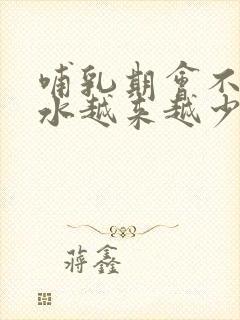 哺乳期会不
水越来越少
蒋鑫